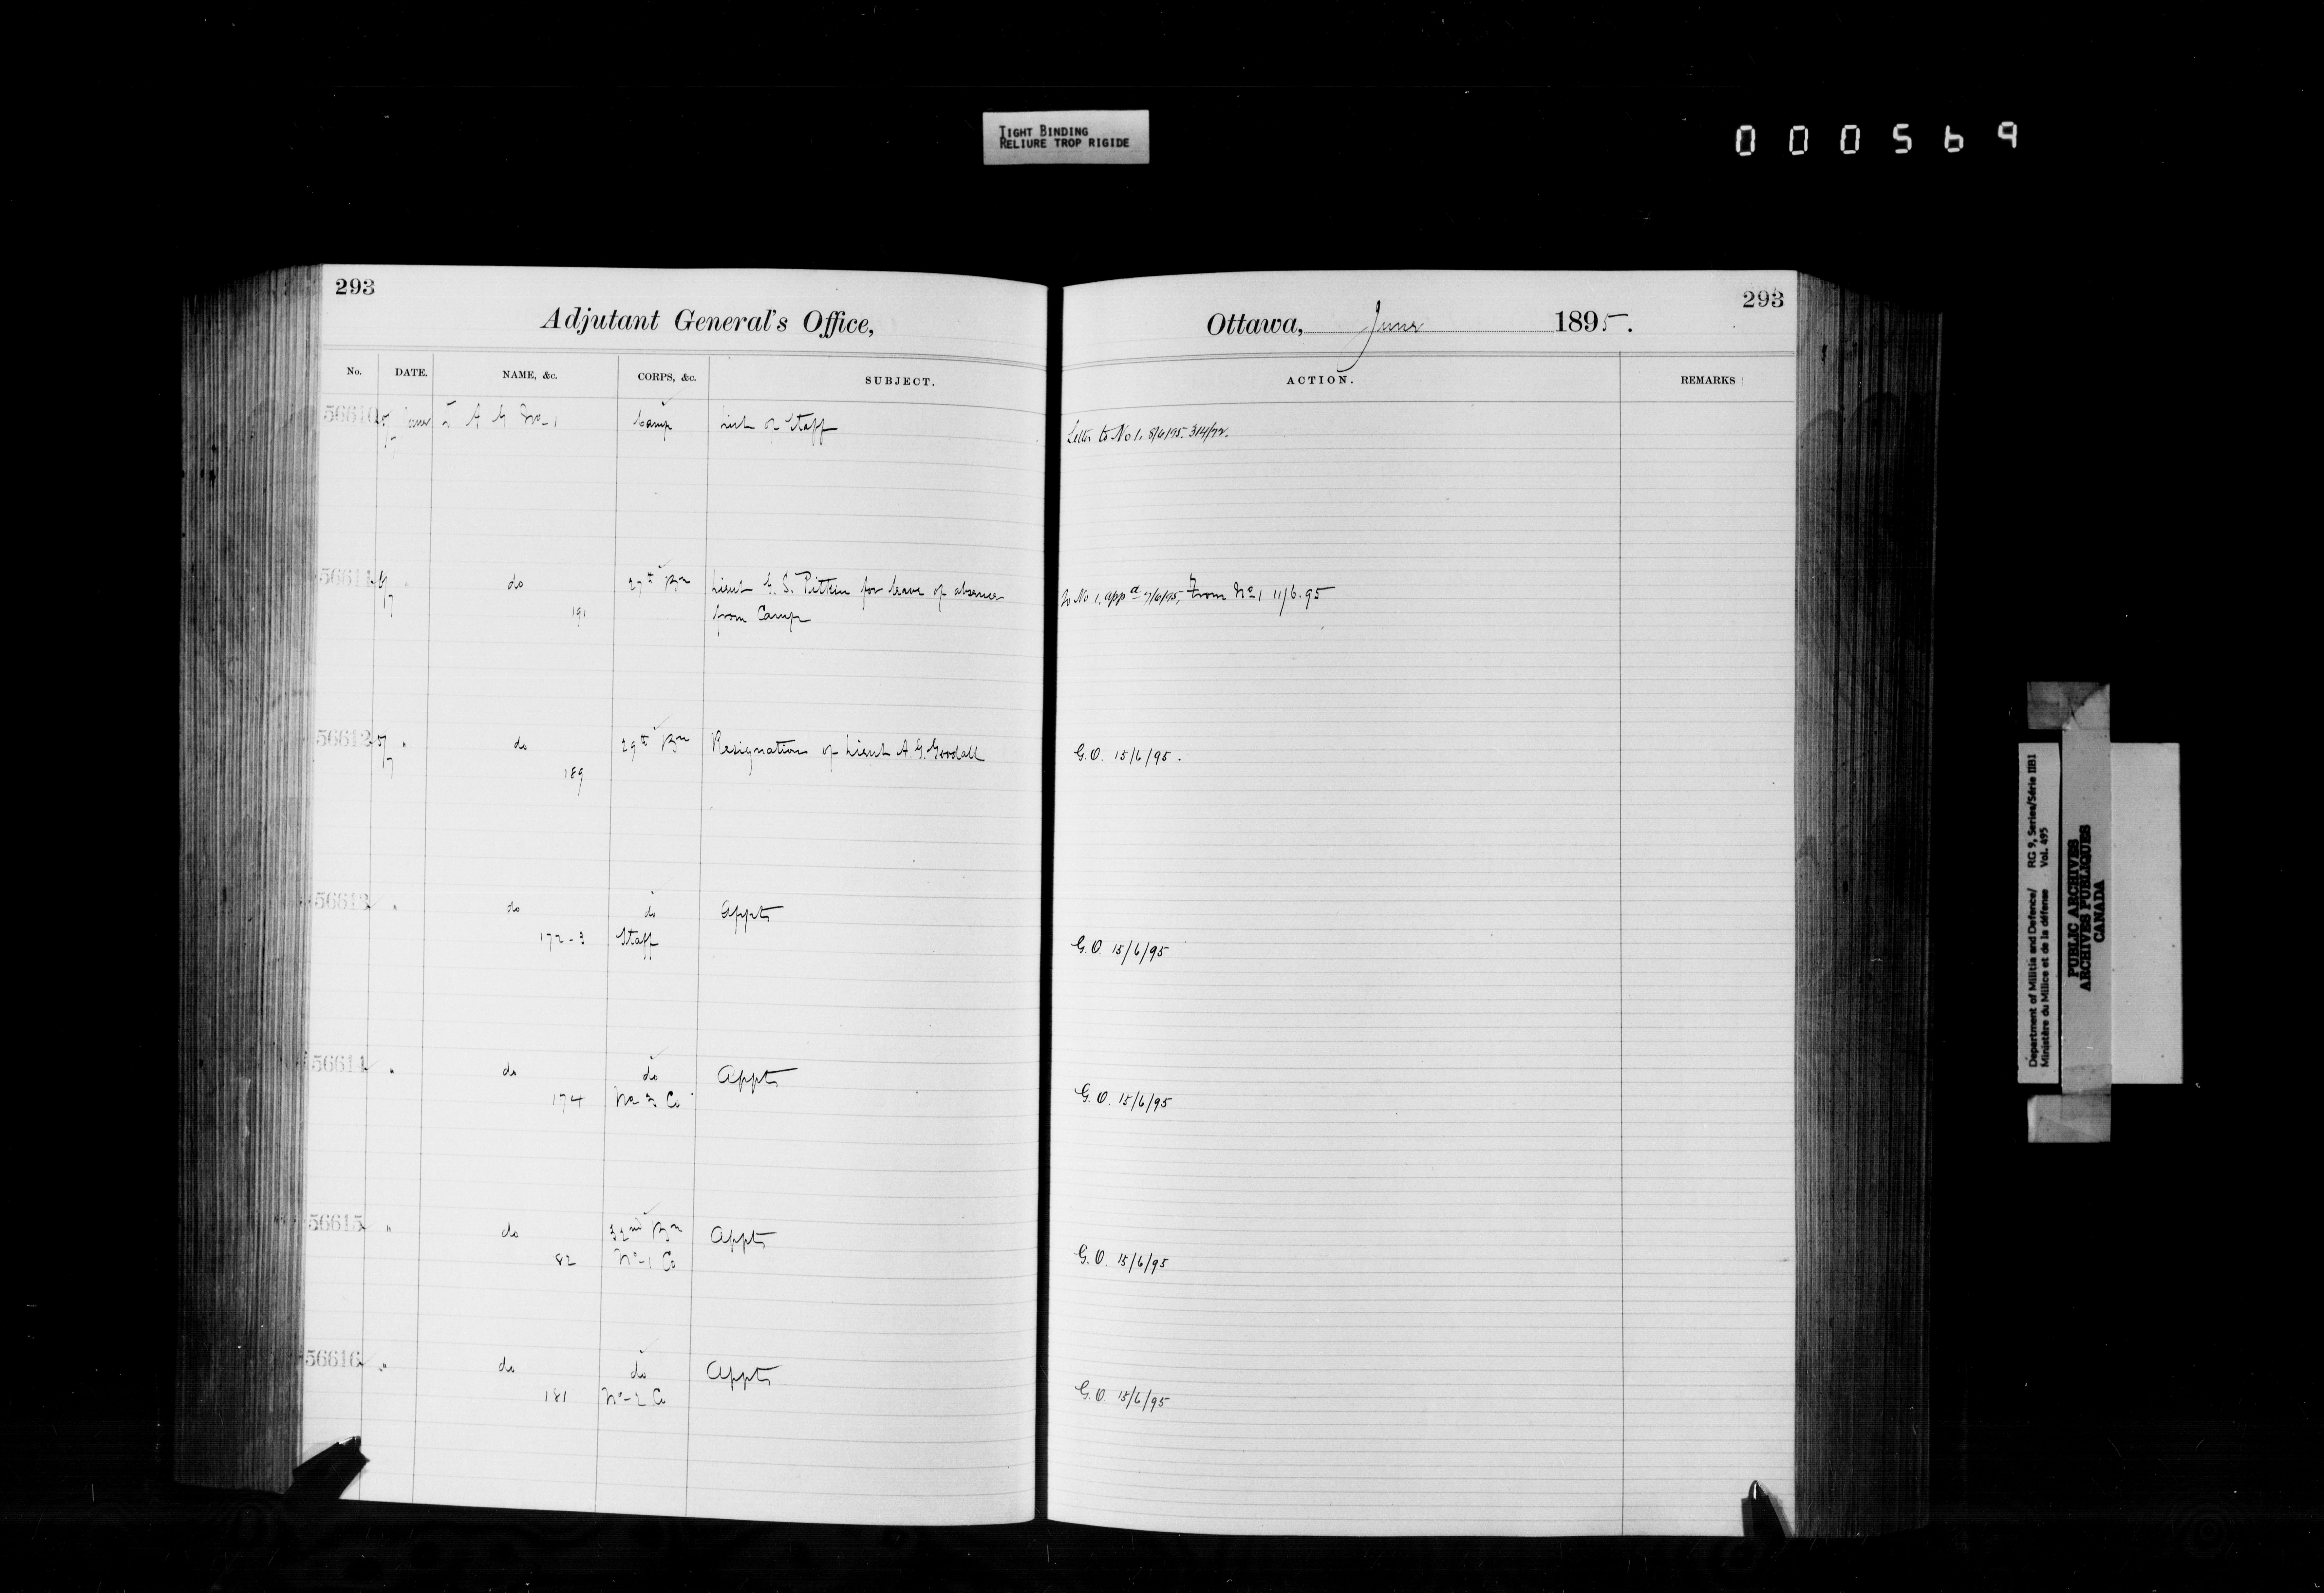 TIGHT BINDING
RELIURE TROP RIGIDE
000569
293
Adjutant General's Office,
No. DATE. NAME, &c. CORPS, &c. SUBJECT.
56610 5/7 June D A G No 1 Camp List of Staff
56611 6/7 " do 27th Bn Lieut G. S. Pitkin for leave of absence
191 from Camp
56612 5/7 " do 29th Bn Resignation of Lieut A. G. Goodall
189
56613 " do do Appts
172-3 Staff
56614 " do do Appts
174 No 3 Co
56615 " do 32nd Bn Appts
82 No 1 Co
56616 " do do Appts
181 No 2 Co
293
Ottawa, June 1895.
ACTION. REMARKS
Letter to No 1. 8/6/95. 314/72.
To No 1. appd 7/6/95, From No 1 11/6.95
G.O. 15/6/95.
G.O. 15/6/95
G.O. 15/6/95
G.O. 15/6/95
G.O. 15/6/95
Department of Militia and Defence/ RG 9, Series/Série IIB1
Ministère du Milice et de la défense Vol. 495
PUBLIC ARCHIVES
ARCHIVES PUBLIQUES
CANADA